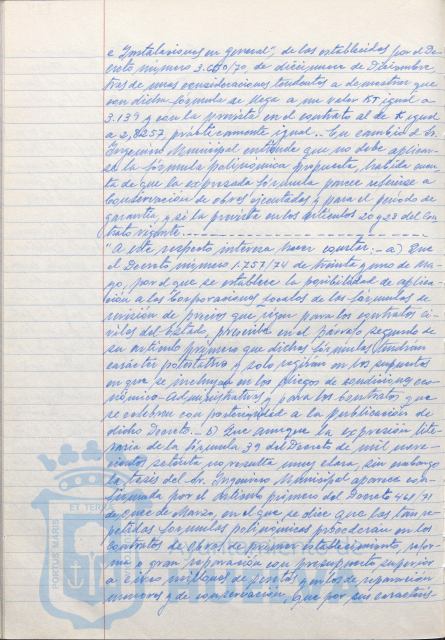 e Instalaciones en general", de los establecidos por el De-
creto número 3.650/70, de diecinueve de Diciembre,
tras de unas consideraciones tendentes a demostrar que
con dicha fórmula se llega a un valor KT igual a
3.139 y con la prevista en el contrato al de K igual
a 2,8257, prácticamente igual.- En cambio el Sr.
Ingeniero Municipal entiende que no debe aplicar-
se la fórmula polinómica propuesta, habida cuen-
ta de que la expresada fórmula parece referirse a
conservación de obras ejecutadas y para el período de
garantía, y sí la prevista en los artículos 20 y 23 del Con-
trato vigente.
"A este respecto interesa hacer constar:- a) Que
el Decreto número 1.757/74 de treinta y uno de Ma-
yo, por el que se establece la posibilidad de aplica-
ción a las Corporaciones Locales de las fórmulas de
revisión de precios que rigen para los contratos ci-
viles del Estado, prescribe en el párrafo segundo de
su artículo primero que dichas fórmulas tendrán
carácter potestativo y solo regirán en los supuestos
en que se incluyan en los pliegos de condiciones eco-
nómico-administrativas y para los Contratos que
se celebren con posterioridad a la publicación de
dicho Decreto.- b) Que aunque la expresión lite-
raria de la fórmula 39 del Decreto de mil nove-
cientos setenta no resulta muy clara, sin embargo
la tesis del Sr. Ingeniero Municipal aparece con-
firmada por el Artículo primero del Decreto 461/71
de once de Marzo, en el que se dice que las tan re-
petidas fórmulas polinómicas procederán en los
contratos de obras de primer establecimiento, refor-
ma o gran reparación con presupuesto superior
a cinco millones de pesetas y en los de reparación
menores y de conservación, que por sus caracterís-
PORTUS MAGNI
ET TERRA